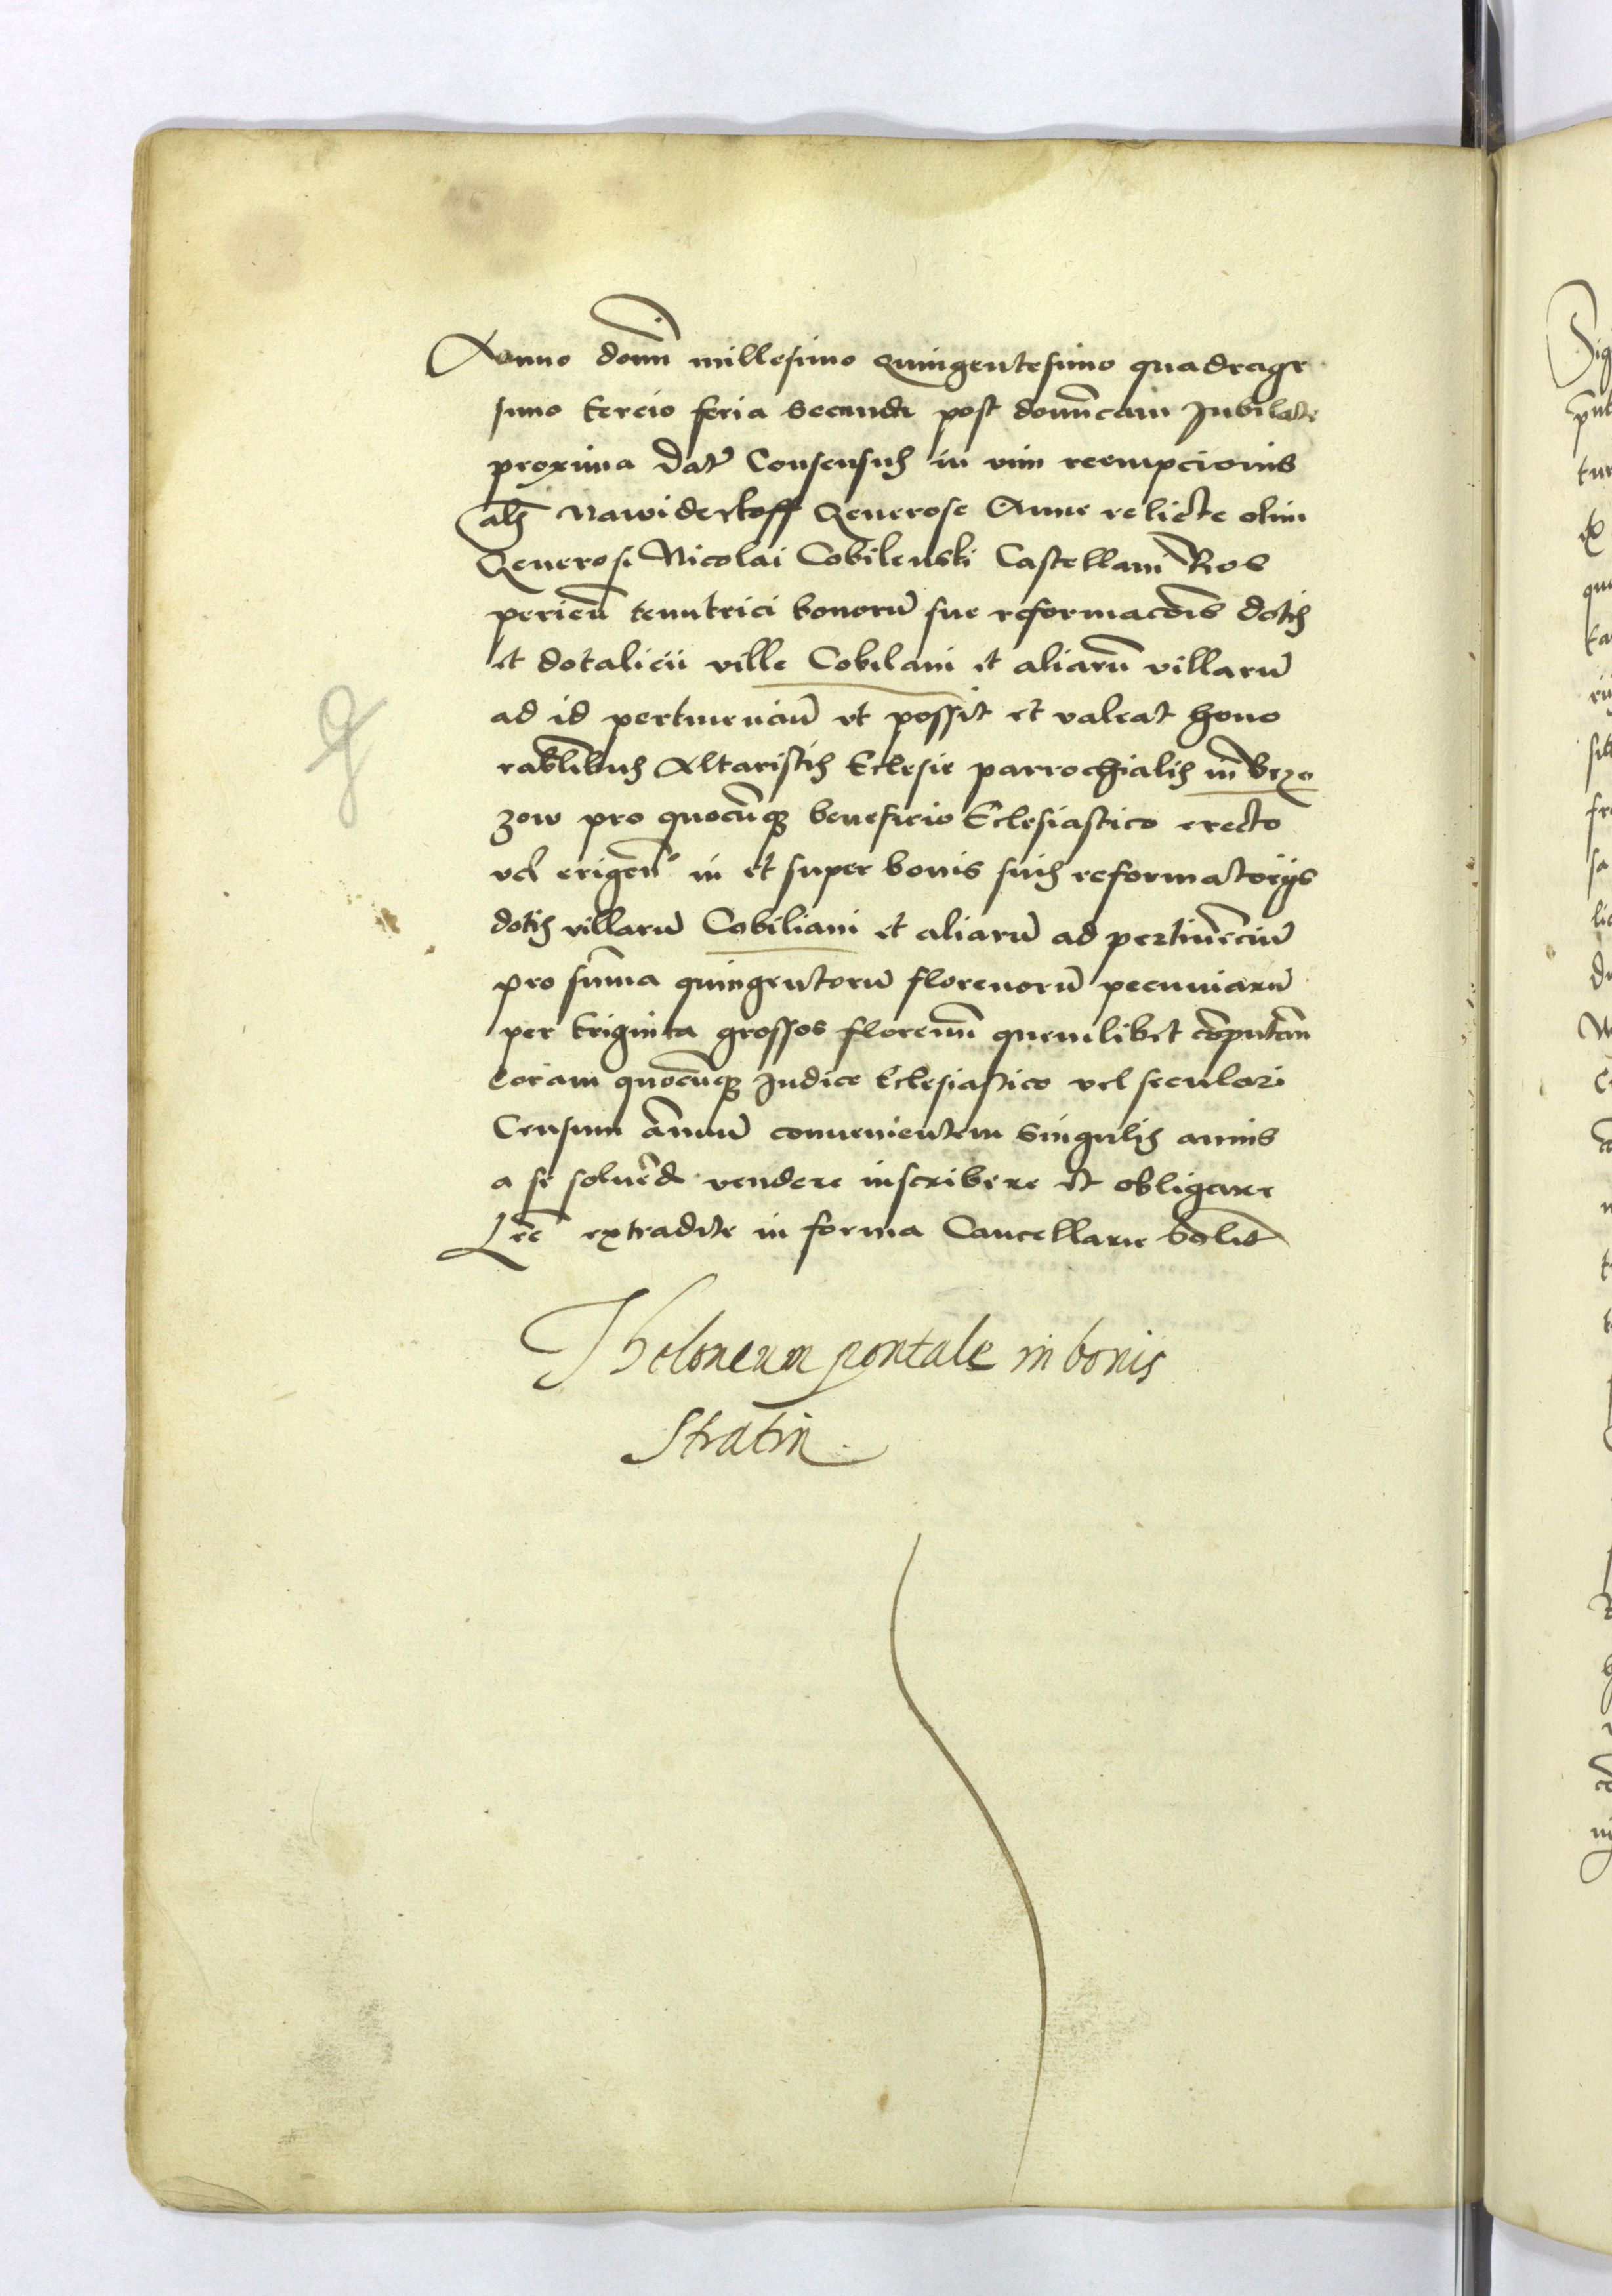 Anno domi millesimo Quingentesimo quadrage
simo tercio feria secunda post dominicam Jubilate
proxima Datr Consensus in vim reempcionis
als Nawiderkoff Generose Anne relicte olim
Generosi Nicolai Cobilenski Castellani Ros
perien tenutrici bonorū sue reformacōis dotis
et dotalicii ville Cobilani et aliarū villarū
ad id pertinenciū vt possit et valeat hono
rablibus Altaristis Eclesie parrochialis in Brzo
zow pro quocūq beneficio Eclesiastico erecto
vel erigen in et super bonis suis reformatorijs
dotis villarū Cobiliani et aliarū ad pertinēciū
pro sūma quingentorū florenorū pecuniarū
per triginta grossos florenū quemlibet cōputan
coram quocūq Judice Eclesiastico vel seculari
Censum ānuū convenientem singulis annis
a se soluēd vendere inscribere et obligare
Lre extradite in forma Cancellarie solit
Theloneum pontale in bonis
Stratin.